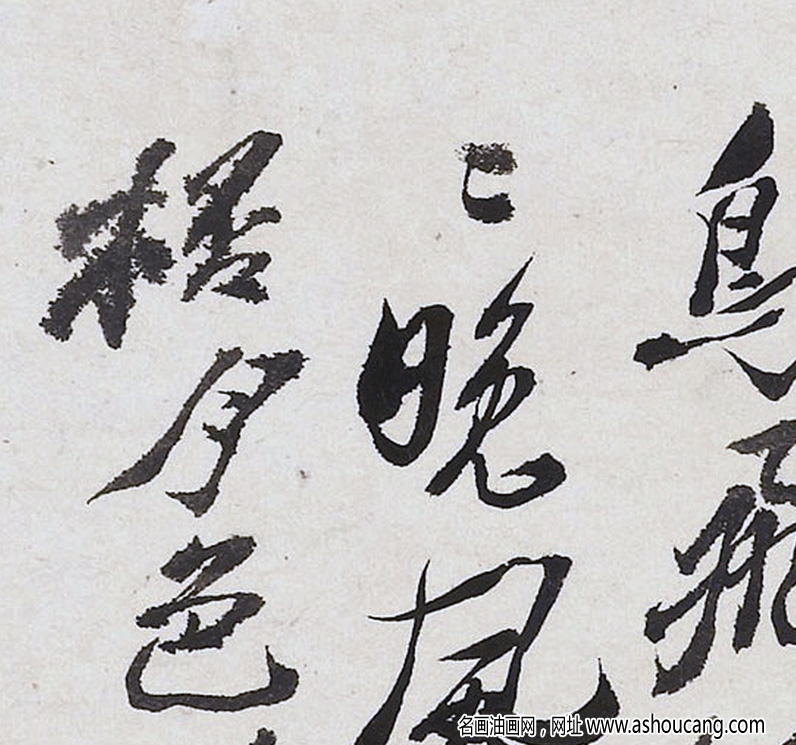 鳥飛
〻晚風
梧月色
名画油画网，网址 www.ashoucang.com